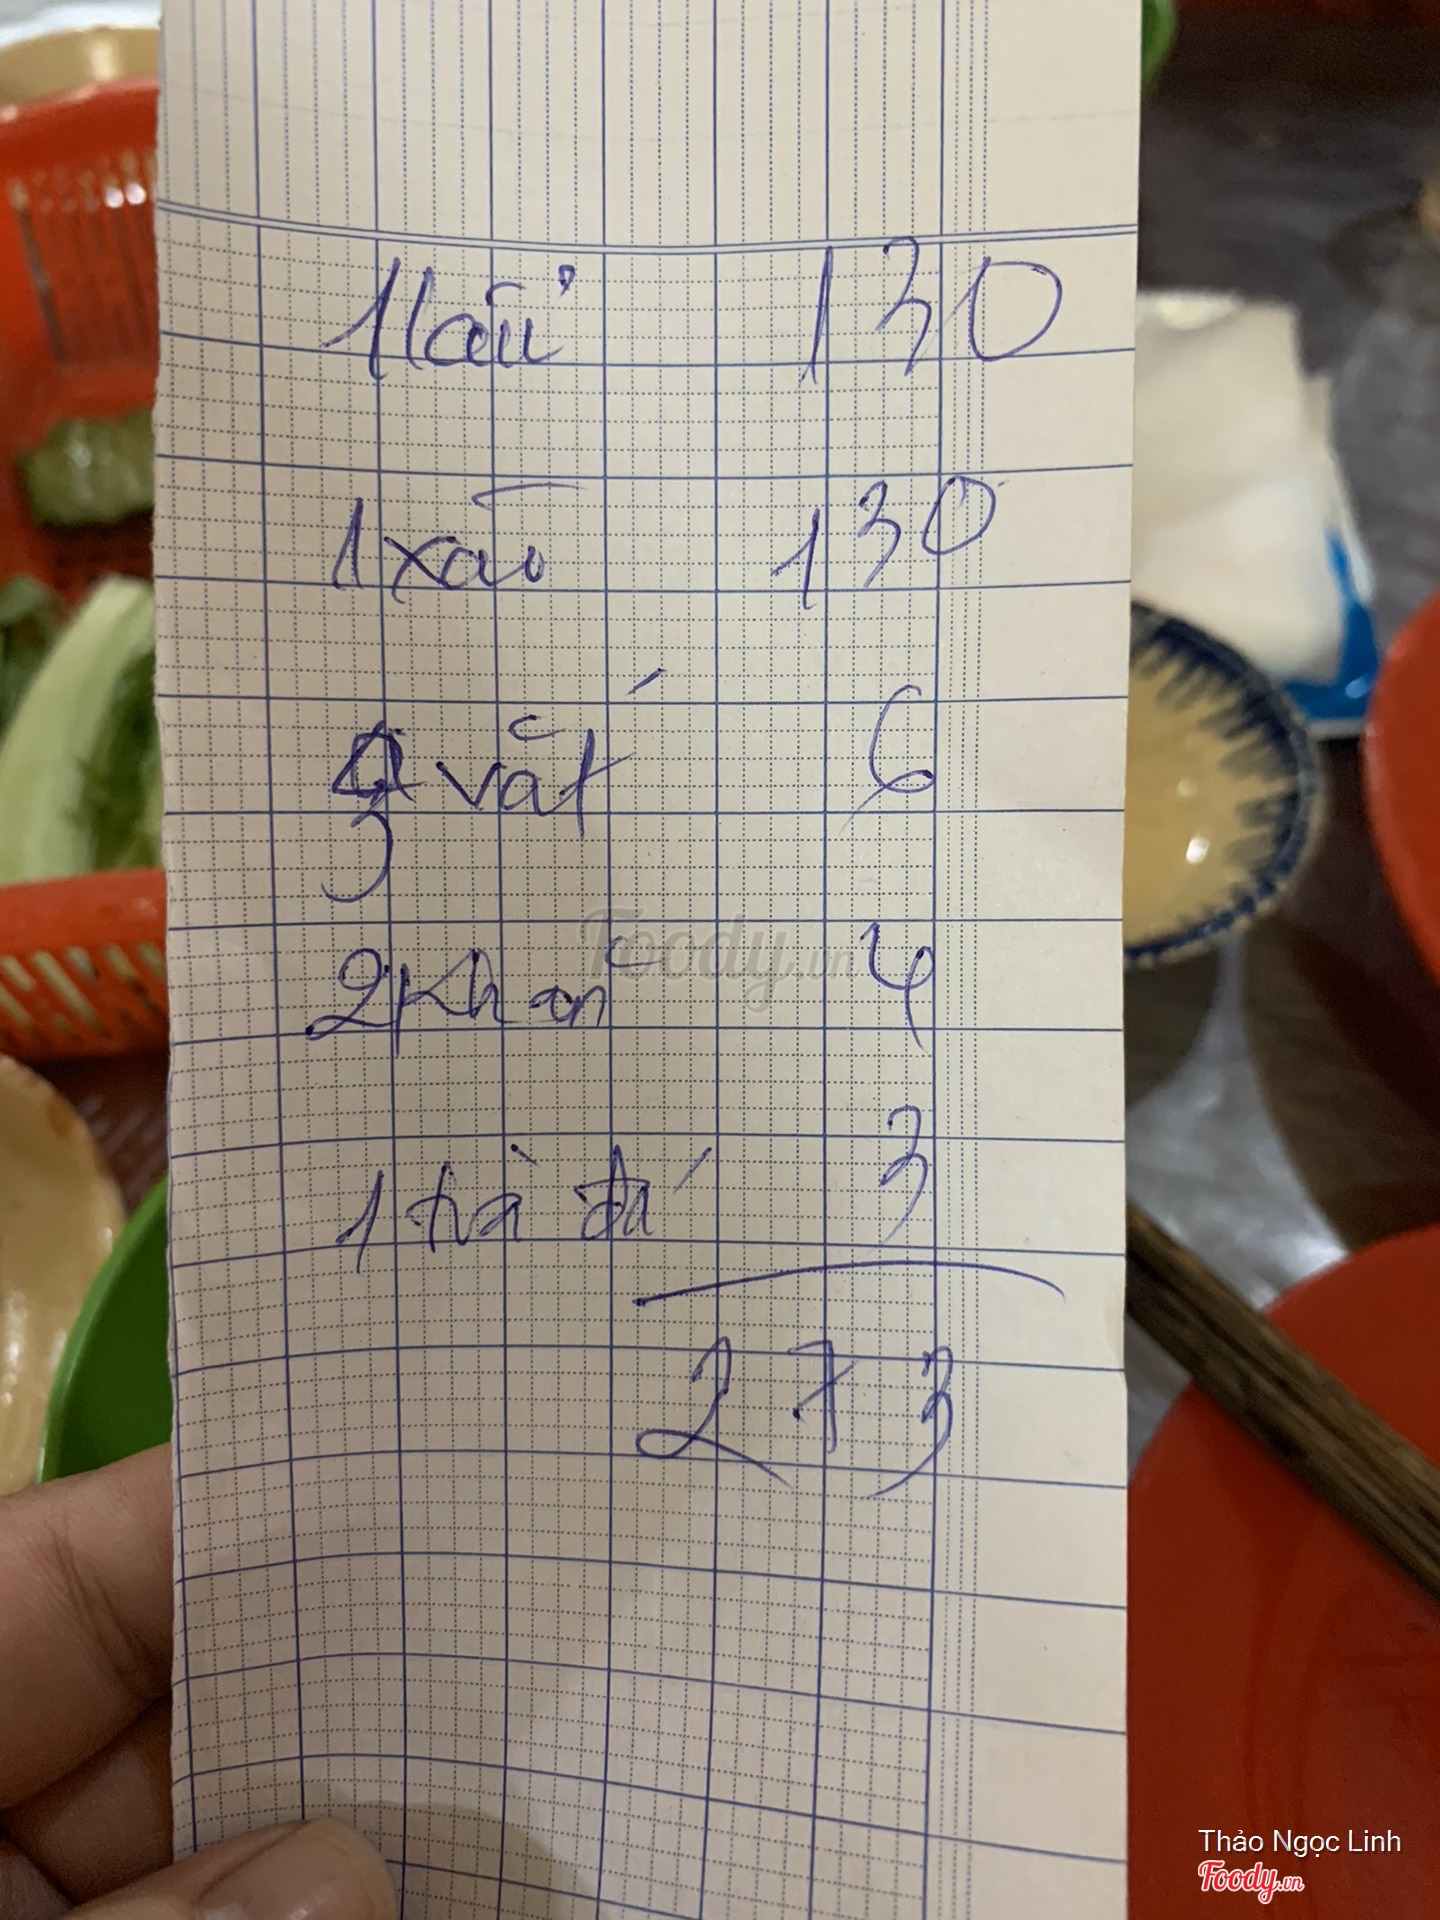 1 lẩu 130
1 xào 130
3 vắt 6
2 khăn 4
1 trà đá 3
273
Foody.vn
Thảo Ngọc Linh
Foody.vn